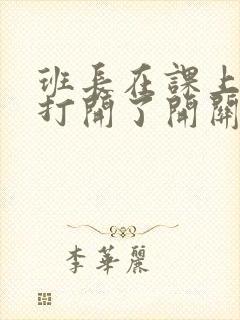 班長在課上
打開了開關
李華麗